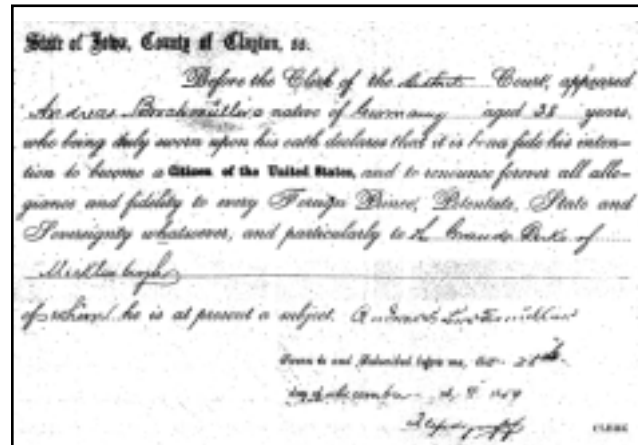 State of Iowa, County of Clayton, ss.
Before the Clerk of the District Court, appeared
Andreas a native of Germany aged 38 years,
who being duly sworn upon his oath declares that it is bona fide his inten-
tion to become a Citizen of the United States, and to renounce forever all alle-
giance and fidelity to every Foreign Prince, Potentate, State and
Sovereignty whatsoever, and particularly to the Grand Duke of
of whom he is at present a subject.
Sworn to and Subscribed before me, this 28th
day of December A. D.
CLERK